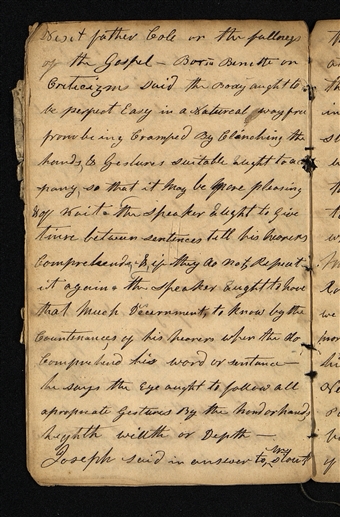 Next father Cole on the fullness
of the Gospel — Benette on
Criticizm said the Body aught to
be perfect Easy in a Natureal way free
from being Cramped By Clinching the
hands, & Gestures suitable aught to ac
pany so that it may be more pleasing
the Speaker Aught to Give
time between sentences till his hearers
Comprehends & if they do not, Repeat
it again & the Speaker Aught to have
that Much Decernment, to know by the
Countenances of his hearers when the do
Comprehend his word or sentence —
he says the Eye aught to follow all
apropreate Gestures By the hand or hands
heighth width or Depth —
Joseph said in answer to Mr Stout